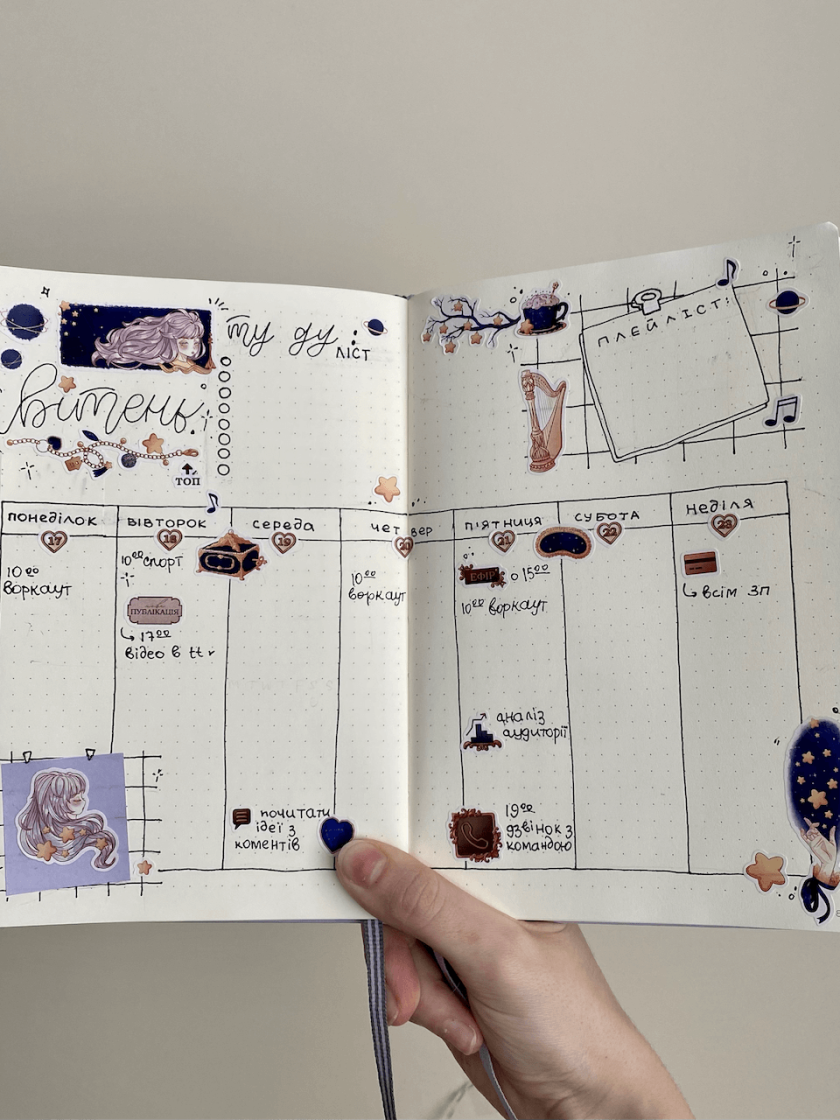 ту ду
ліст
вітень
ТОП
ПЛЕЙЛІСТ:
понеділок
17
10 00
воркаут
вівторок
18
10 00 спорт
ПУБЛІКАЦІЯ
17 00
відео в tt
середа
19
почитати
ідеї з
коментів
четвер
20
10 00
воркаут
п'ятниця
21
ЕФІР о 15 00
10 00 воркаут
аналіз
аудиторії
19 00
дзвінок з
командою
субота
22
неділя
23
всім зп